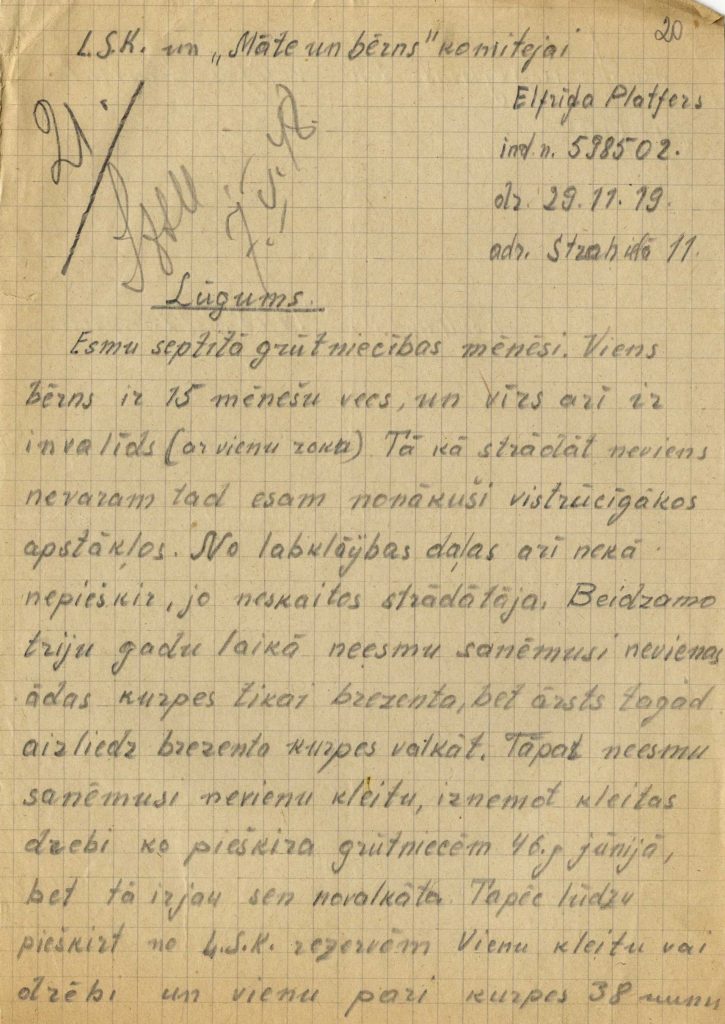 20
L.S.K. un „Māte un bērns" komitejai
Elfrīda Platfers
ind. n. 598502.
dz. 29.11.19.
adr. 11.
21.
7. V. 47.
Lūgums.
Esmu septītā grūtniecības mēnēsi. Viens
bērns ir 15 mēnešu vecs, un vīrs arī ir
invalīds (ar vienu roku) Tā kā strādāt neviens
nevaram tad esam nonākuši vistrūcīgākos
apstākļos. No labklājības daļas arī nekā
nepiešķir, jo neskaitos strādātāja. Beidzamo
triju gadu laikā neesmu saņēmusi nevienas
ādas kurpes tikai brezenta, bet ārsts tagad
aizliedz brezenta kurpes valkāt. Tāpat neesmu
saņēmusi nevienu kleitu, izņemot kleitas
drēbi ko piešķīra grūtniecēm 46.g jūnijā,
bet tā ir jau sen novalkāta. Tapēc lūdzu
piešķirt no L.S.K. rezervēm Vienu kleitu vai
drēbi un vienu pari kurpes 38